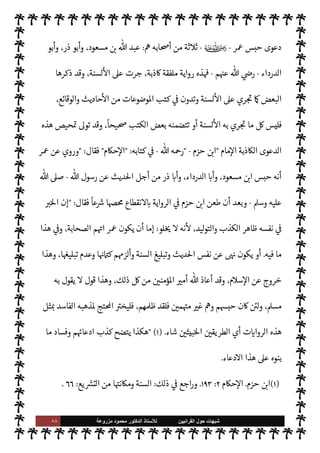 دعوى حبس عمر - ﷺ - ثلاثة من أصحابه هم: عبد الله بن مسعود، وأبو ذر، وأبو
الدرداء - رضي الله عنهم - فهذه رواية ملفقة كاذبة، جرت على الألسنة، وقد ذكرها
البعض كما تجري على الألسنة وتدون في كتب الموضوعات من الأحاديث والوقائع،
فليس كل ما تجري به الألسنة أو تتضمنه بعض الكتب صحيحاً، وقد تولى تمحيص هذه
الدعوى الكاذبة الإمام "ابن حزم - "رحمه الله - في كتابه: "الإحكام" فقال: "وروي عن عمر
أنه حبس ابن مسعود، وأبا الدرداء، وأبا ذر من أجل الحديث عن رسول الله - صلى الله
عليه وسلم - وبعد أن طعن ابن حزم في الرواية بالانقطاع محصها شرعاً فقال: "إن الخبر
في نفسه ظاهر الكذب والتوليد، لأنه لا يخلو: إما أن يكون عمر اتهم الصحابة، وفي هذا
ما فيه. أو يكون نهى عن نفس الحديث وتبليغ السنة وألزمهم كتمانها وعدم تبليغها، وهذا
خروج عن الإسلام، وقد أعاذ الله أمير المؤمنين من كل ذلك، وهذا قول لا يقول به
مسلم، ولئن كان حبسهم وهم غير متهمين فلقد ظلمهم، فليختر المحتج لمذهبه الفاسد بمثل
هذه الروايات أي الطريقين الخبيثين شاء. (١) "هكذا يتضح كذب ادعائهم وفساد ما
بنوه على هذا الادعاء.
(١)ابن حزم. الإحكام ٢: ١٩٣. وراجع في ذلك: السنة ومكانتها من التشريع: ٦٦ .
شبهات حول القرآنيين للأستاذ الدكتور محمود مزروعة